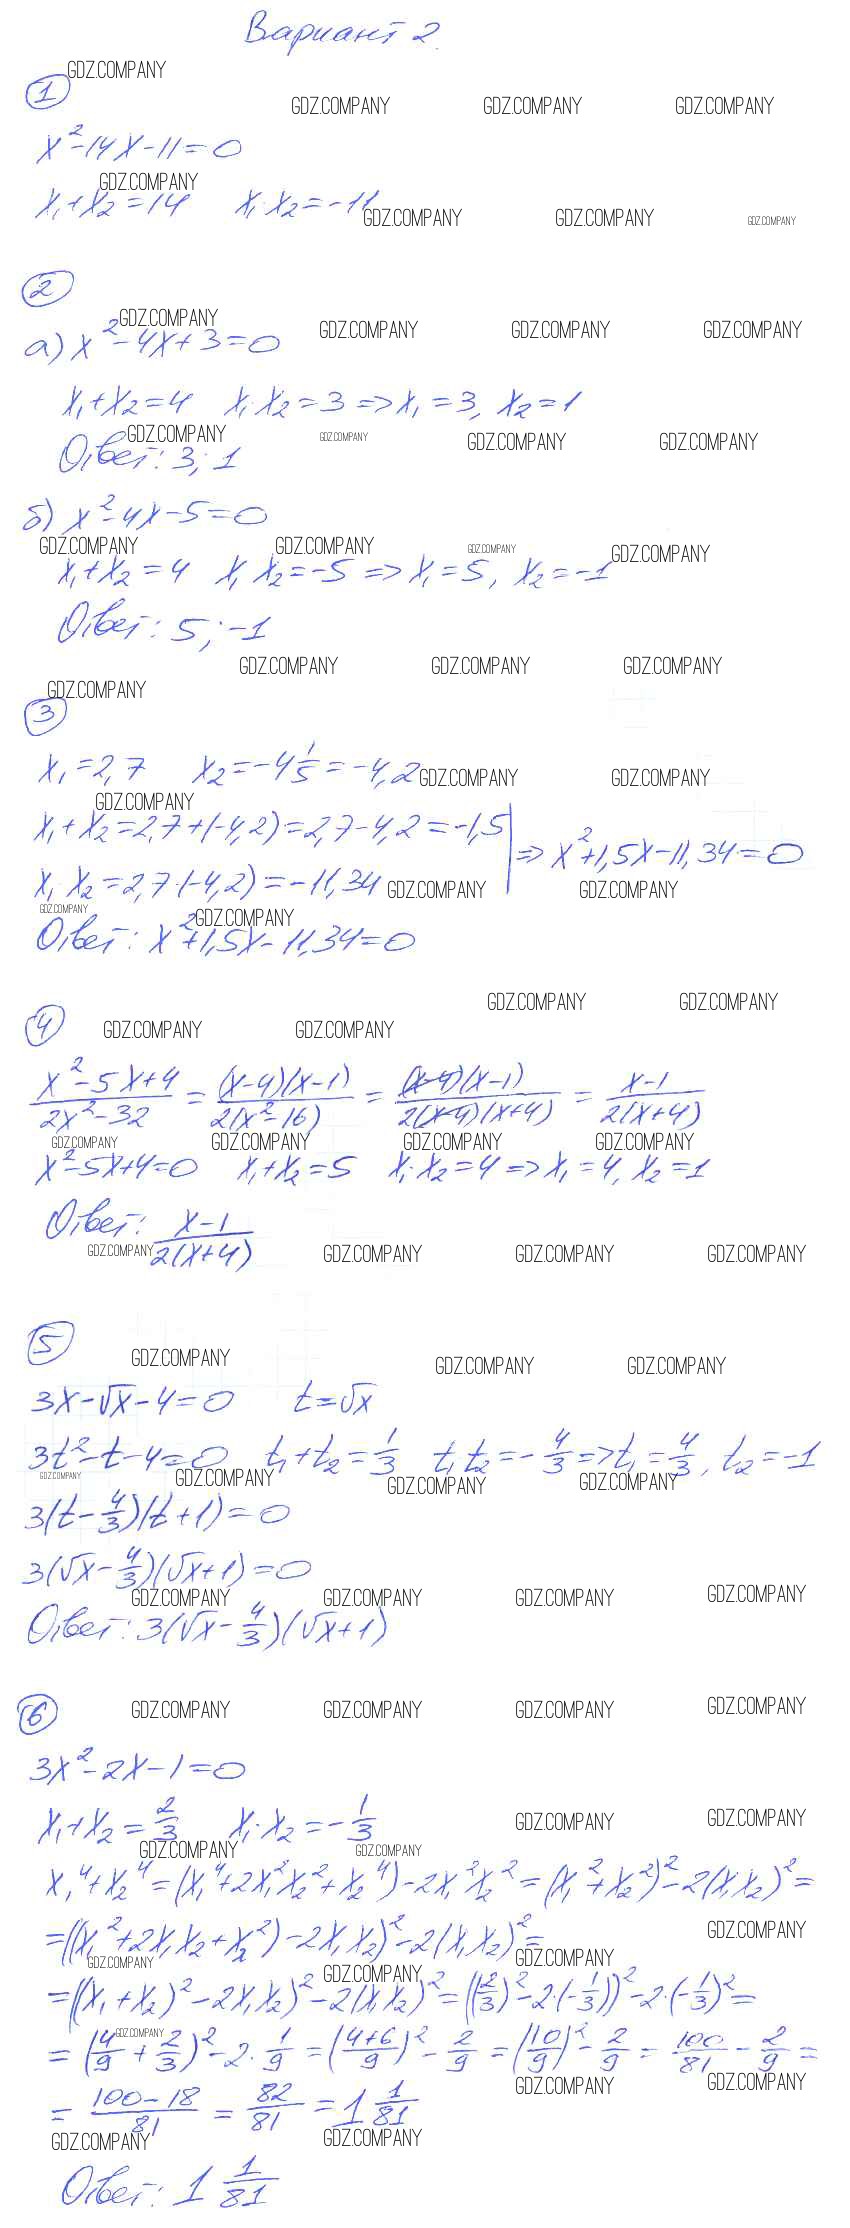 Вариант 2.
GDZ.COMPANY
1
GDZ.COMPANY GDZ.COMPANY GDZ.COMPANY
x²-14x-11=0
GDZ.COMPANY
x₁+x₂=14 x₁·x₂=-11
GDZ.COMPANY GDZ.COMPANY GDZ.COMPANY
2
GDZ.COMPANY GDZ.COMPANY GDZ.COMPANY GDZ.COMPANY
а) x²-4x+3=0
x₁+x₂=4 x₁·x₂=3 => x₁=3, x₂=1
GDZ.COMPANY GDZ.COMPANY GDZ.COMPANY GDZ.COMPANY
Ответ: 3; 1
б) x²-4x-5=0
GDZ.COMPANY GDZ.COMPANY GDZ.COMPANY GDZ.COMPANY
x₁+x₂=4 x₁x₂=-5 => x₁=5, x₂=-1
Ответ: 5; -1
GDZ.COMPANY GDZ.COMPANY GDZ.COMPANY
GDZ.COMPANY
3
x₁=2,7 x₂=-4 1/5=-4,2
GDZ.COMPANY GDZ.COMPANY
GDZ.COMPANY
x₁+x₂=2,7+(-4,2)=2,7-4,2=-1,5
=> x²+1,5x-11,34=0
x₁x₂=2,7·(-4,2)=-11,34
GDZ.COMPANY GDZ.COMPANY
GDZ.COMPANY GDZ.COMPANY
Ответ: x²+1,5x-11,34=0
GDZ.COMPANY GDZ.COMPANY
4
GDZ.COMPANY GDZ.COMPANY
(x²-5x+4)/(2x²-32) = (x-4)(x-1)/2(x²-16) = (x-4)(x-1)/2(x-4)(x+4) = (x-1)/2(x+4)
GDZ.COMPANY GDZ.COMPANY GDZ.COMPANY GDZ.COMPANY
x²-5x+4=0 x₁+x₂=5 x₁·x₂=4 => x₁=4, x₂=1
Ответ: (x-1)/2(x+4)
GDZ.COMPANY GDZ.COMPANY GDZ.COMPANY GDZ.COMPANY
5
GDZ.COMPANY GDZ.COMPANY GDZ.COMPANY
3x-√x-4=0 t=√x
3t²-t-4=0 t₁+t₂=1/3 t₁t₂=-4/3 => t₁=4/3, t₂=-1
GDZ.COMPANY GDZ.COMPANY GDZ.COMPANY GDZ.COMPANY
3(t-4/3)(t+1)=0
3(√x-4/3)(√x+1)=0
GDZ.COMPANY GDZ.COMPANY GDZ.COMPANY GDZ.COMPANY
Ответ: 3(√x-4/3)(√x+1)
6
GDZ.COMPANY GDZ.COMPANY GDZ.COMPANY GDZ.COMPANY
3x²-2x-1=0
x₁+x₂=2/3 x₁·x₂=-1/3
GDZ.COMPANY GDZ.COMPANY
GDZ.COMPANY GDZ.COMPANY
x₁⁴+x₂⁴=(x₁⁴+2x₁²x₂²+x₂⁴)-2x₁²x₂²=(x₁²+x₂²)²-2(x₁x₂)²=
GDZ.COMPANY
=((x₁²+2x₁x₂+x₂²)-2x₁x₂)²-2(x₁x₂)²=
GDZ.COMPANY GDZ.COMPANY
GDZ.COMPANY
=((x₁+x₂)²-2x₁x₂)²-2(x₁x₂)²=((2/3)²-2·(-1/3))²-2·(-1/3)²=
GDZ.COMPANY
=(4/9+2/3)²-2·1/9=((4+6)/9)²-2/9=(10/9)²-2/9=100/81-2/9=
GDZ.COMPANY GDZ.COMPANY
=(100-18)/81=82/81=1 1/81
GDZ.COMPANY GDZ.COMPANY
Ответ: 1 1/81